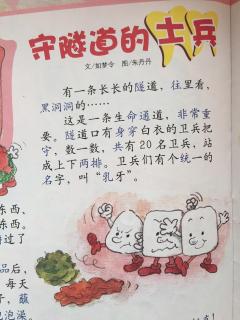 守隧道的士兵
文/如梦令 图/朱丹丹
有一条长长的隧道，往里看，
黑洞洞的……
这是一条生命通道，非常重
要。隧道口有身穿白衣的卫兵把
守，数一数，共有20名卫兵，站
成上下两排。卫兵们有个统一的
名字，叫“乳牙”。
东西、
东西。
过了
品后，
每天
子，蘸
泡澡。